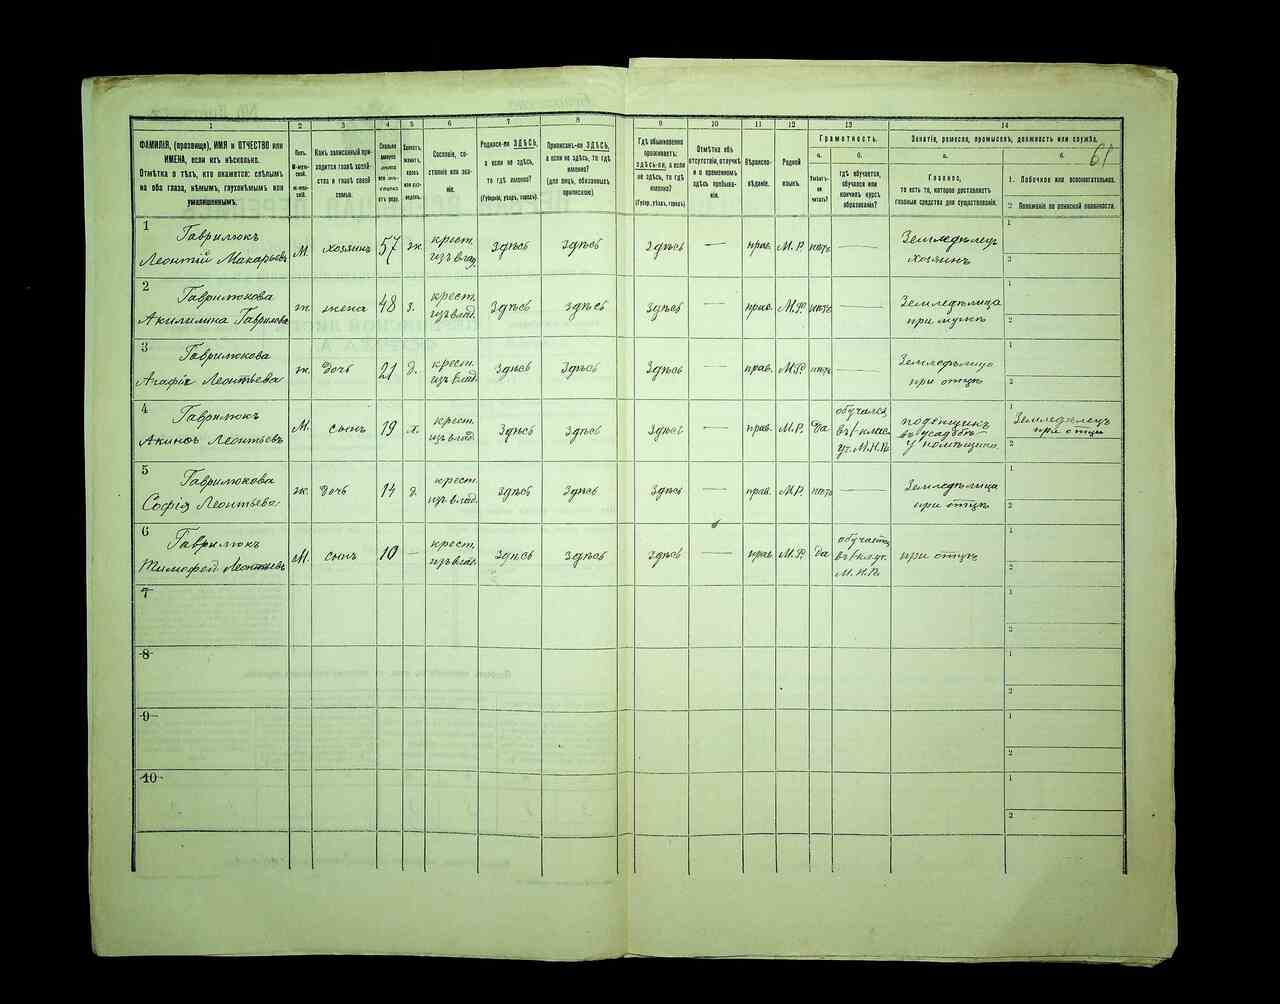 61
1
2
3
4
5
6
7
8
9
10
11
12
13
14
ФАМИЛІЯ, (прозвище), ИМЯ и ОТЧЕСТВО или
ИМЕНА, если ихъ нѣсколько.
Отмѣтка о тѣхъ, кто окажется: слѣпымъ
на оба глаза, нѣмымъ, глухонѣмымъ или
умалишеннымъ.
Полъ.
М-муж-
ской.
Ж-жен-
скій.
Какъ записанный при-
ходится главѣ хозяй-
ства и главѣ своей
семьи.
Сословіе, со-
стояніе или зва-
ніе.
Родился-ли ЗДѢСЬ,
а если не здѣсь,
то гдѣ именно?
(Губернія, уѣздъ, городъ).
Приписанъ-ли ЗДѢСЬ,
а если не здѣсь, то гдѣ
именно?
(для лицъ, обязанныхъ
припискою)
Гдѣ обыкновенно
проживаетъ:
здѣсь-ли, а если
не здѣсь, то гдѣ
именно?
(Губер., уѣздъ, городъ).
Отмѣтка объ
отсутствіи, отлучкѣ
и о временномъ
здѣсь пребыва-
ніи.
Вѣроиспо-
вѣданіе.
Родной
языкъ.
Грамотность.
а.
б.
Умѣетъ-
ли
читать?
гдѣ обучается,
обучался или
кончилъ курсъ
образованія?
Занятіе, ремесло, промыселъ, должность или служба.
а.
б.
Главное,
то есть то, которое доставляетъ
главныя средства для существованія.
1. Побочное или вспомогательное.
2 Положеніе по воинской повинности.
1
Гаврилюкъ
Леонтій Макарьевъ
М.
хозяинъ
57
ж.
крест.
изъ влад.
Здѣсь
Здѣсь
Здѣсь
—
прав.
М.Р.
нѣтъ
—
Земледѣлец
хозяинъ
1
2
2
Гаврилюкова
Акилилина Гаврилова
ж.
жена
48
з.
крест.
изъ влад.
Здѣсь
Здѣсь
Здѣсь
—
прав.
М.Р.
нѣтъ
—
Земледѣлица
при мужѣ
1
2
3
Гаврилюкова
Агафія Леонтьева
ж.
дочь
21
д.
крест.
изъ влад.
Здѣсь
Здѣсь
Здѣсь
—
прав.
М.Р.
нѣтъ
—
Земледѣлица
при отцѣ
1
2
4
Гаврилюкъ
Леонтьевъ
М.
сынъ
19
х.
крест.
изъ влад.
Здѣсь
Здѣсь
Здѣсь
—
прав.
М.Р.
Да
обучался
въ 1-клас.
уч. М.Н.П.
поденщикъ
въ усадьбѣ
у помѣщика
1
Земледѣлецъ
при отцѣ
2
5
Гаврилюкова
Софія Леонтьева
ж.
дочь
14
д.
крест.
изъ влад.
Здѣсь
Здѣсь
Здѣсь
—
прав.
М.Р.
нѣтъ
—
Земледѣлица
при отцѣ
1
2
6
Гаврилюкъ
Тимофей Леонтьевъ
М.
сынъ
10
—
крест.
изъ влад.
Здѣсь
Здѣсь
Здѣсь
—
прав.
М.Р.
Да
обучается
въ 1 кл. уч.
М.Н.П.
при отцѣ
1
2
7
1
2
8
1
2
9
1
2
10
1
2